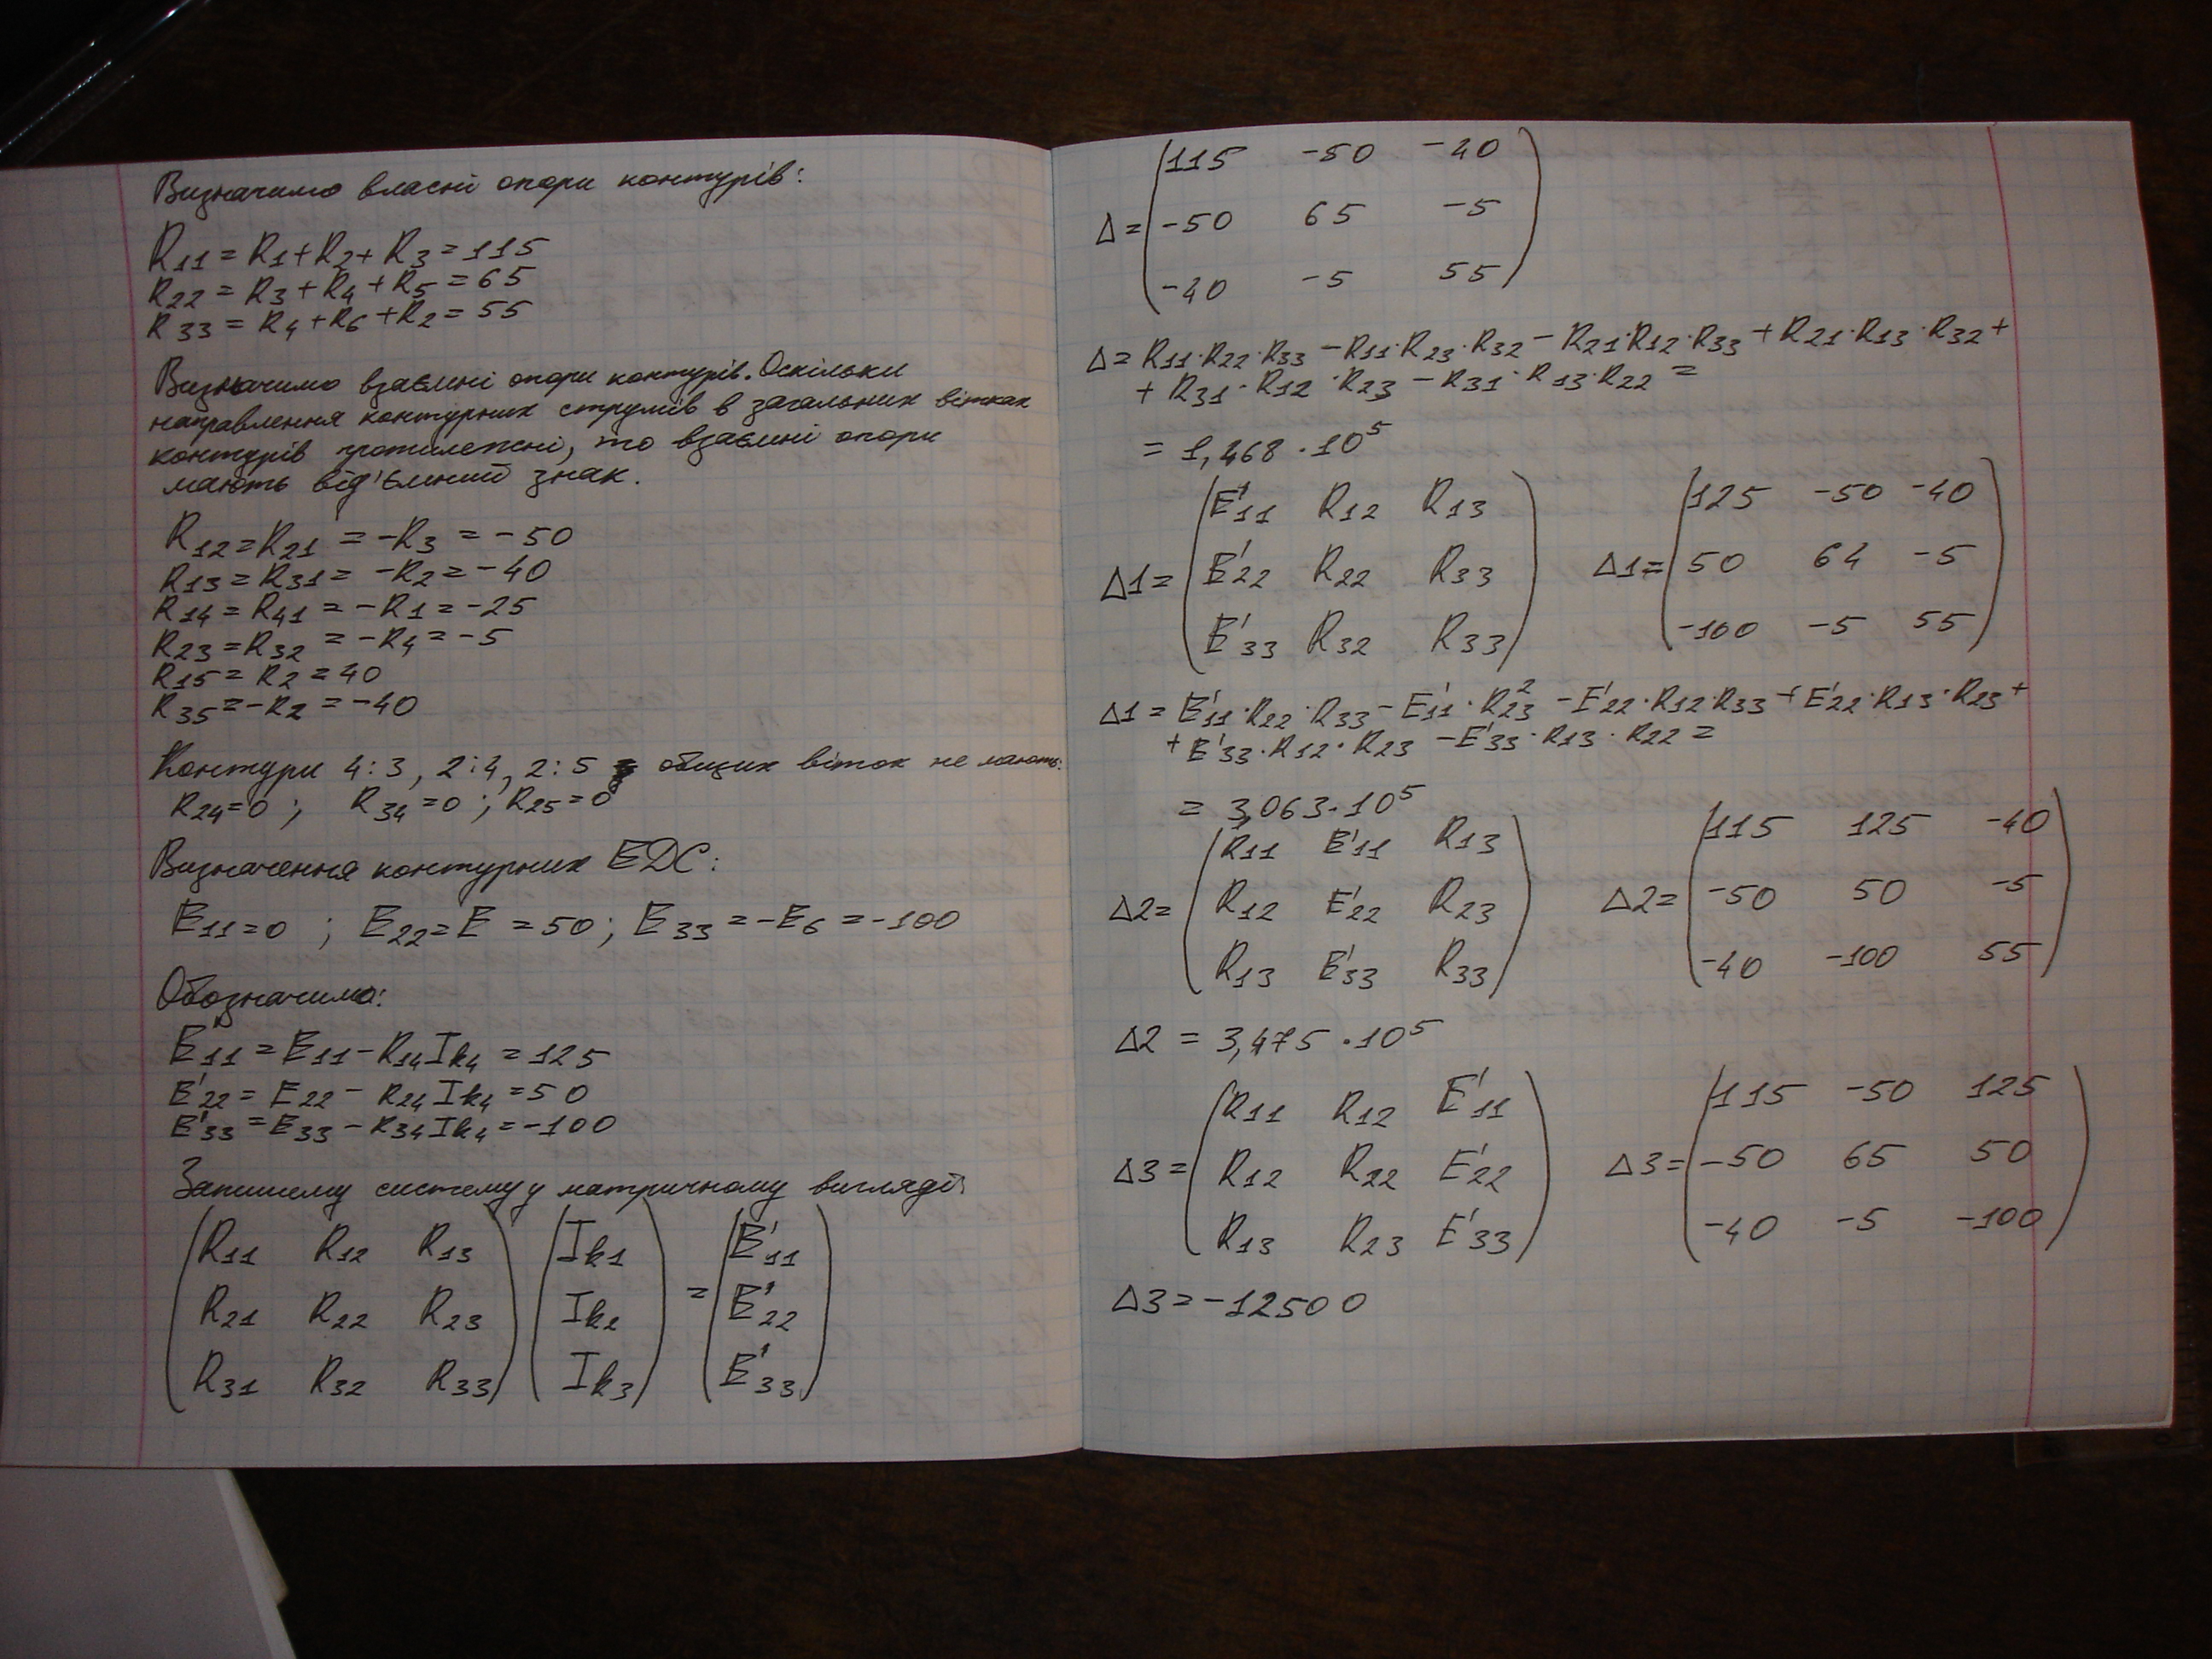 Визначимо власні опори контурів:
R11 = R1 + R2 + R3 = 115
R22 = R3 + R4 + R5 = 65
R33 = R4 + R6 + R2 = 55
Визначимо взаємні опори контурів. Оскільки
направлення контурних струмів в загальних вітках
контурів протилежні, то взаємні опори
мають від'ємний знак.
R12 = R21 = -R3 = -50
R13 = R31 = -R2 = -40
R14 = R41 = -R1 = -25
R23 = R32 = -R4 = -5
R15 = R2 = 40
R35 = -R2 = -40
Контури 4:3, 2:4, 2:5 общих віток не мають:
R24 = 0 ; R34 = 0 ; R25 = 0
Визначення контурних ЕДС:
E11 = 0 ; E22 = E = 50 ; E33 = -E6 = -100
Обозначимо:
E'11 = E11 - R14 Ik4 = 125
E'22 = E22 - R24 Ik4 = 50
E'33 = E33 - R34 Ik4 = -100
Запишему систему у матричному вигляді:
(R11 R12 R13) (Ik1) (E'11)
(R21 R22 R23) (Ik2) = (E'22)
(R31 R32 R33) (Ik3) (E'33)
115 -50 -40
Δ = -50 65 -5
-40 -5 55
Δ = R11·R22·R33 - R11·R23·R32 - R21·R12·R33 + R21·R13·R32 +
+ R31·R12·R23 - R31·R13·R22 =
= 1,468·10⁵
E'11 R12 R13 125 -50 -40
Δ1 = E'22 R22 R33 Δ1 = 50 64 -5
E'33 R32 R33 -100 -5 55
Δ1 = E'11·R22·R33 - E'11·R23² - E'22·R12·R33 + E'22·R13·R23 +
+ E'33·R12·R23 - E'33·R13·R22 =
= 3,063·10⁵
R11 E'11 R13 115 125 -40
Δ2 = R12 E'22 R23 Δ2 = -50 50 -5
R13 E'33 R33 -40 -100 55
Δ2 = 3,475·10⁵
R11 R12 E'11 115 -50 125
Δ3 = R12 R22 E'22 Δ3 = -50 65 50
R13 R23 E'33 -40 -5 -100
Δ3 = -12500